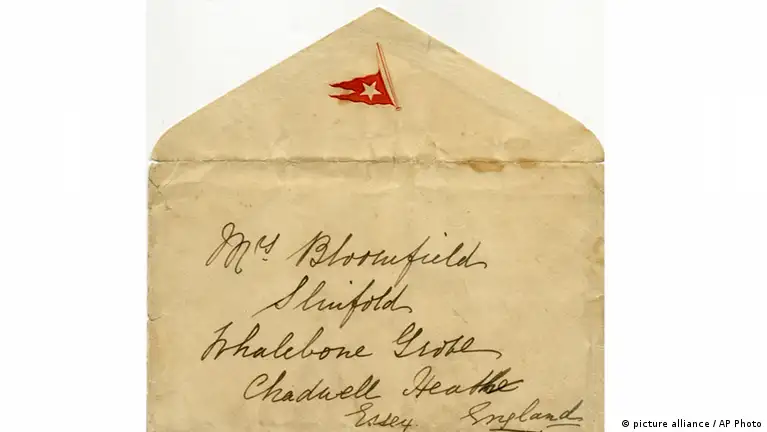 Mrs Bloomfield
Slinfold
Whalebone Grove
Chadwell Heath
Essex England
© picture alliance / AP Photo